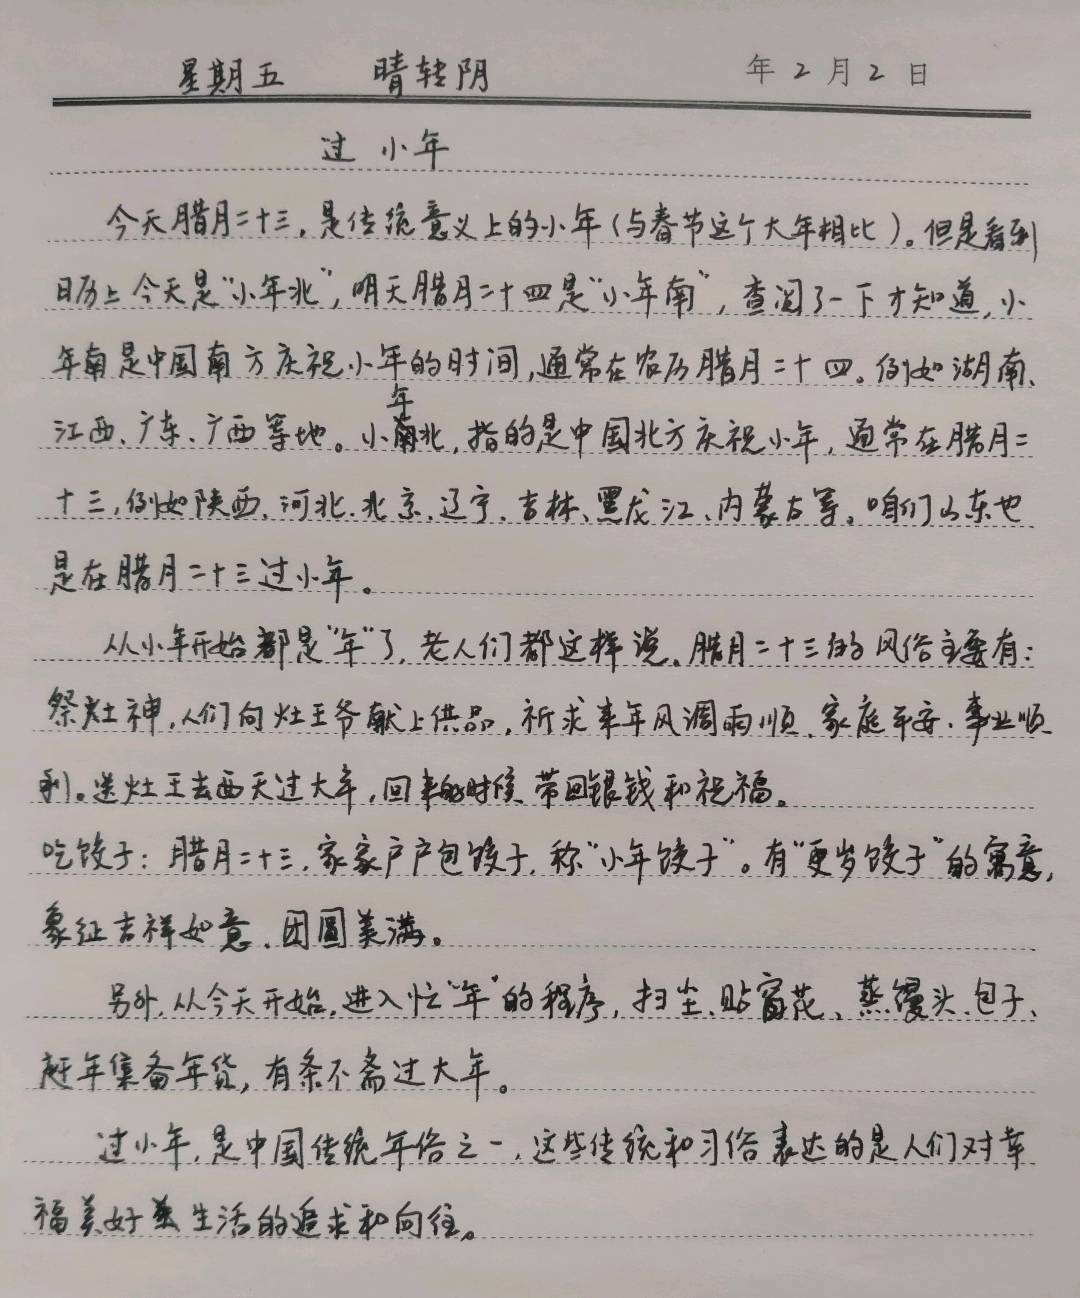 星期五 晴转阴 年2月2日
过小年
今天腊月二十三，是传统意义上的小年（与春节这个大年相比）。但是看到
日历上今天是“小年北”，明天腊月二十四是“小年南”，查阅了一下才知道，小
年南是中国南方庆祝小年的时间，通常在农历腊月二十四。例如湖南、
江西、广东、广西等地。小年北，指的是中国北方庆祝小年，通常在腊月二
十三，例如陕西、河北、北京、辽宁、吉林、黑龙江、内蒙古等。咱们山东也
是在腊月二十三过小年。
从小年开始都是“年”了，老人们都这样说。腊月二十三的风俗主要有：
祭灶神，人们向灶王爷献上供品，祈求来年风调雨顺、家庭平安、事业顺
利。送灶王去西天过大年，回来的时候带回银钱和祝福。
吃饺子：腊月二十三，家家户户包饺子，称“小年饺子”。有“更岁饺子”的寓意，
象征吉祥如意、团圆美满。
另外，从今天开始，进入忙“年”的程序，扫尘、贴窗花、蒸馒头、包子、
赶年集备年货，有条不紊过大年。
过小年，是中国传统年俗之一，这些传统和习俗表达的是人们对幸
福美好生活的追求和向往。